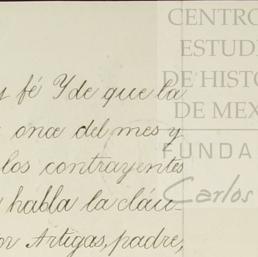 CENTRO
ESTUDI
DE HISTO
DE MEX
FUNDA
Carlos
y fé Y de que la
once del mes y
los contrayentes
habla la cláu-
or Artigas, padre,